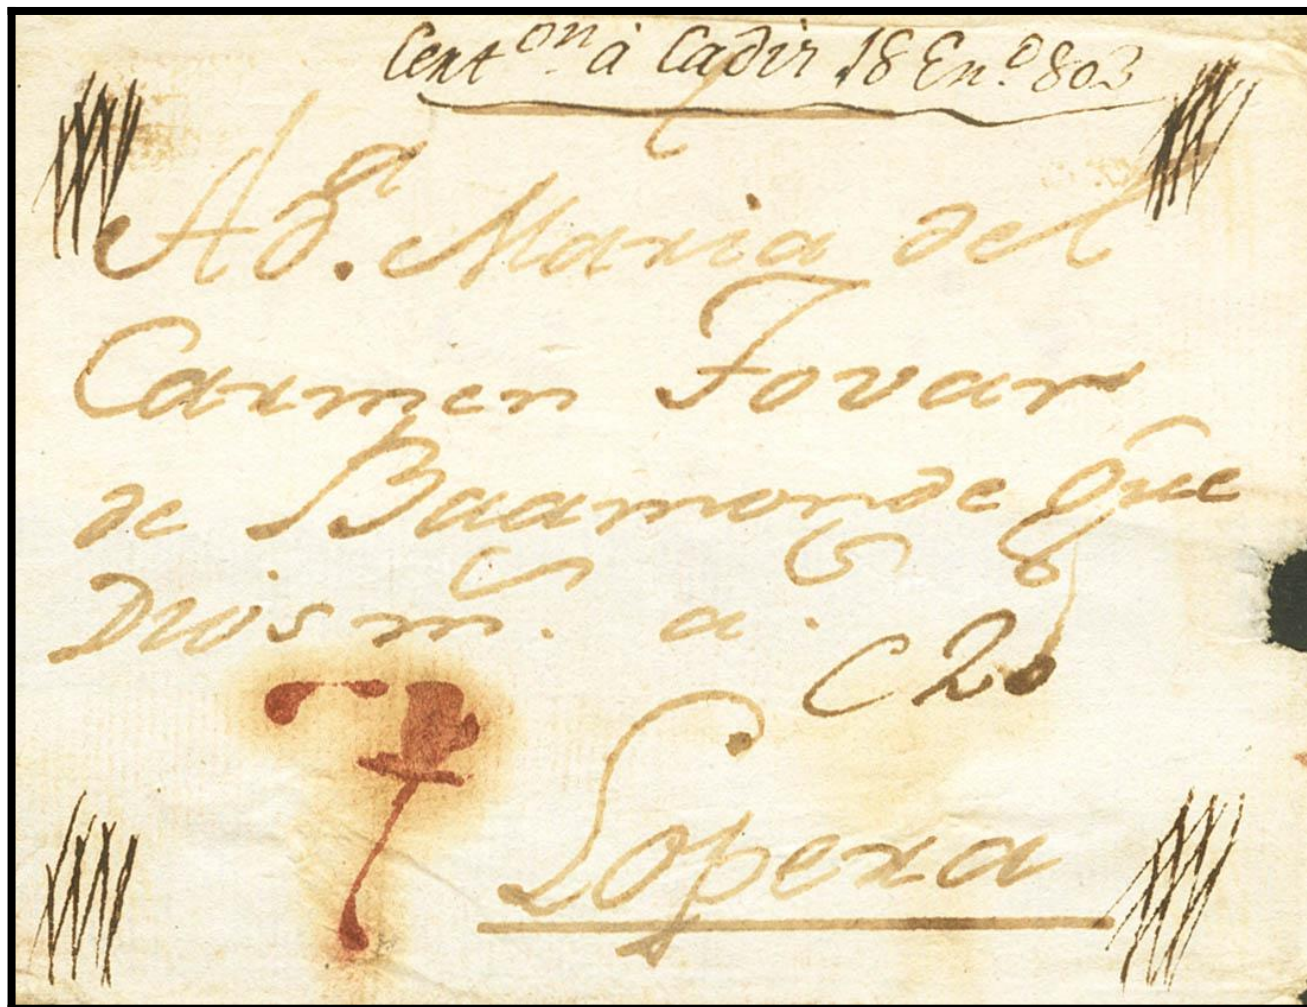 Cextᵒⁿ à Cadiz 18 Enº 803
A Dª. Maria del
Carmen Tovar
de Baamonde que
Dios m.ˢ a.
C 20
7
Lopera